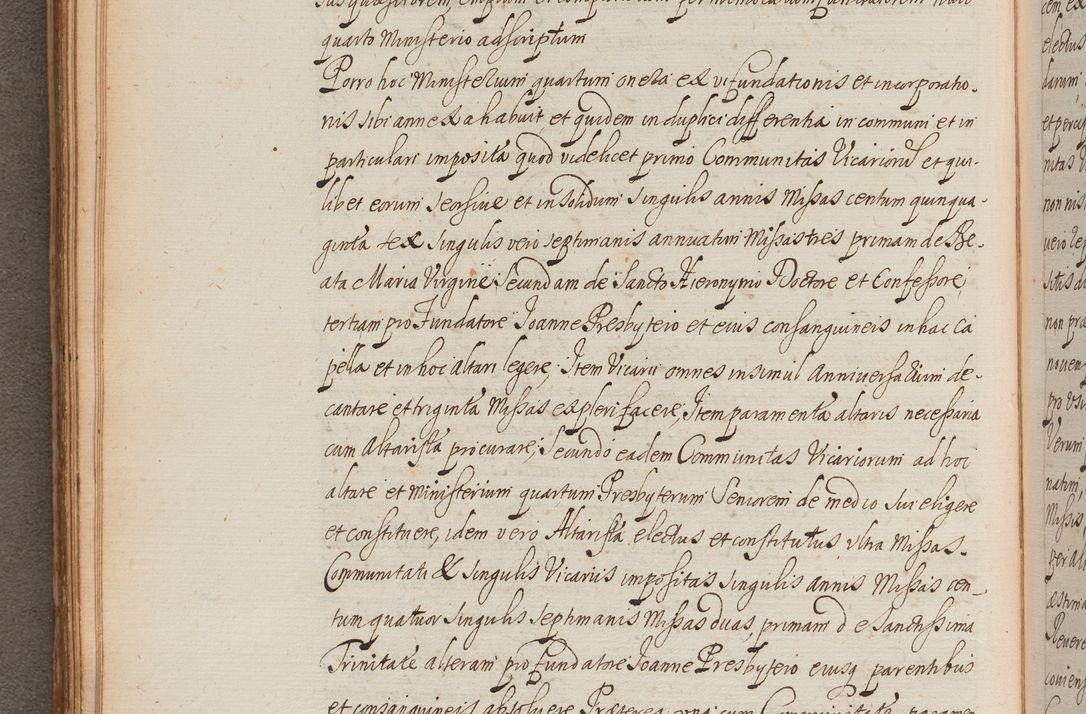 quarto Ministerio adscriptum
Porro hoc Ministerium quartum onera ex vi fundationis et incorporatio-
nis sibi annexa habuit, et quidem in duplici differentia in communi et in
particulari imposita quod videlicet primo Communitas Vicariorum et qui-
libet eorum seorsive et in solidum singulis annis Missas centum quinqua-
ginta sex singulis vero septimanis annuatim Missas tres primam de Be-
ata Maria Virgine, Secundam de Sancto Hieronymo Doctore et Confessore,
tertiam pro Fundatore Joanne Presbytero et eius consanguineis in hac Ca
pella et in hoc Altari legere; Item Vicarii omnes insimul Anniversarium de-
cantare et triginta Missas expleri facere; Item paramenta altaris necessaria
cum Altarista procurare; Secundo eadem Communitas Vicariorum ad hoc
altare et Ministerium quartum Presbyterum Seniorem de medio sui eligere
et constituere, idem vero Altarista electus et constitutus ultra Missas
Communitati & singulis Vicariis impositas singulis annis Missas cen-
tum quatuor singulis septimanis Missas duas, primam de Sanctissima
Trinitate alteram pro Fundatore Joanne Presbytero eiusq parentibus
et consanguineis absolvere Præterea una cum Communitate
cem ex
electus
darum,
et percip
nitas V
non nisi
vero
non
novem
pro usu
Verum
natim
Missas
per al
æstima
Revere
conven